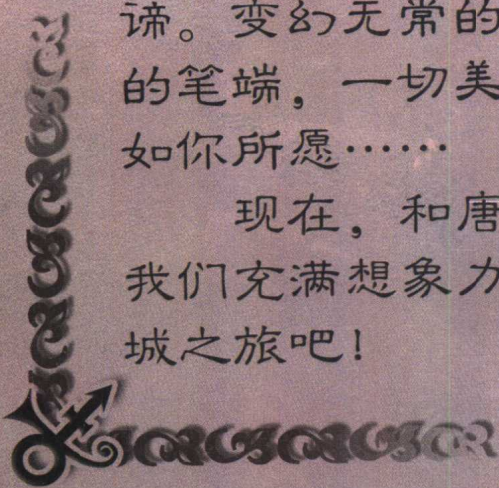 谛。变幻无常的
的笔端，一切美
如你所愿……
现在，和唐
我们充满想象力
城之旅吧！